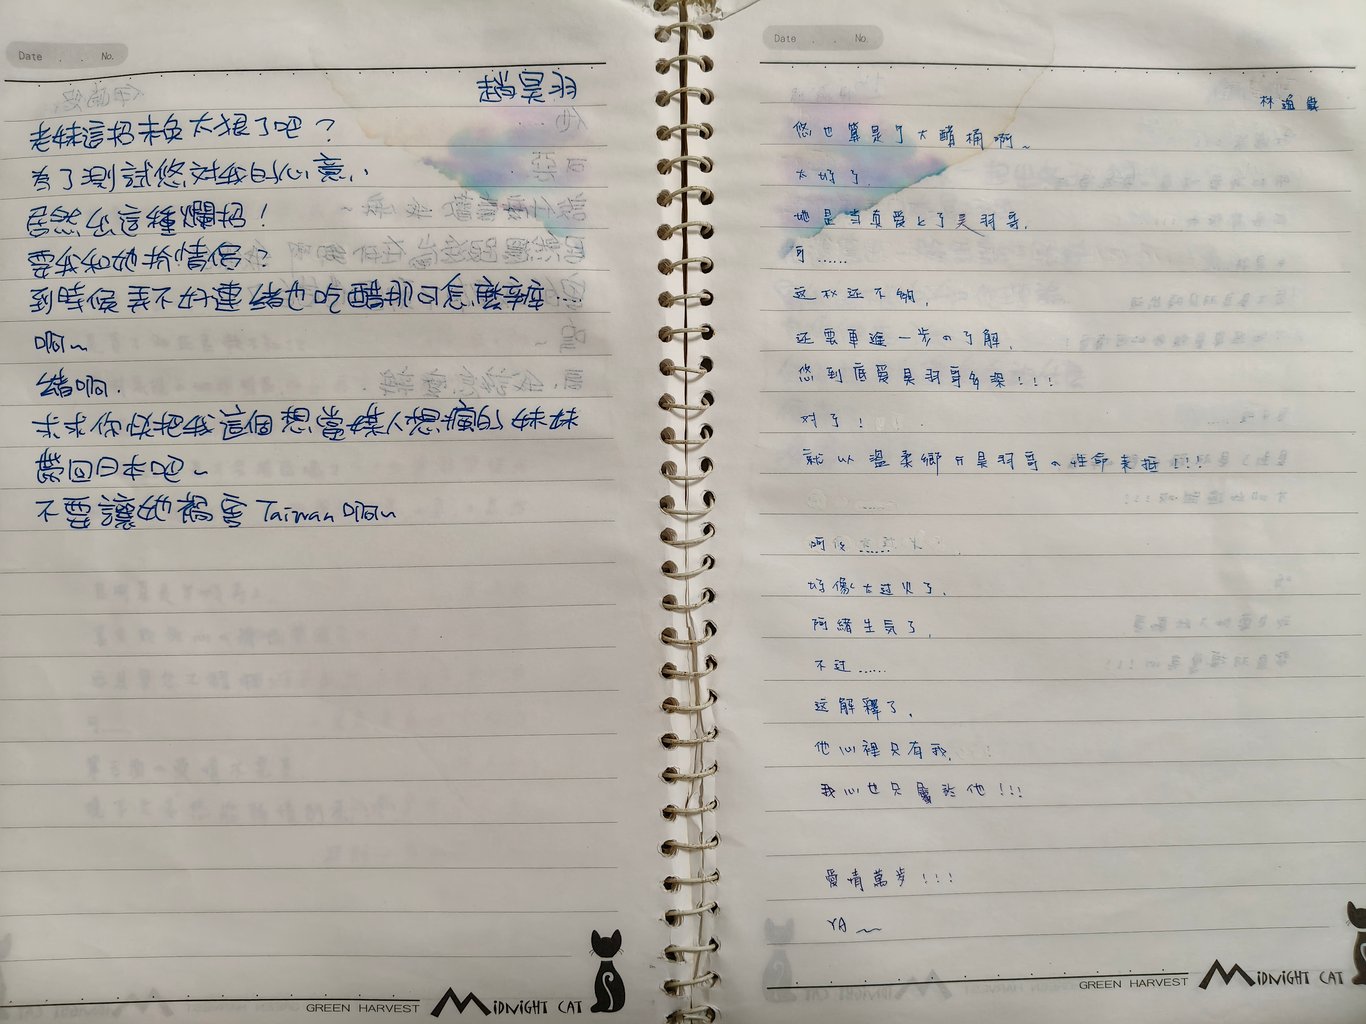 Date . . No.
趙昊羽
老妹這招未免太狠了吧？
為了測試悠對我的心意，
居然出這種爛招！
要我和她拚情侶？
到時候弄不好連緒也吃醋那可怎麼辦
啊～
緒啊．
求求你好把我這個想當媒人想瘋的妹妹
帶回日本吧～
不要讓她禍害Taiwan啊～
GREEN HARVEST MiDNiGHT CAT
Date . . No.
林
悠也算是了大醋桶啊～
太好了．
她是当真爱上了昊羽哥．
可……
这样还不夠．
还需要進一步の了解．
悠到底愛昊羽哥多深!!!
对了!
就以溫柔鄉の昊羽哥の性命来抵!!!
阿……
好像太过火了．
阿緒生気了．
不过……
这解釋了．
他心裡只有我．
我心也只屬於他!!!
愛情萬歲!!!
YA～
GREEN HARVEST MiDNiGHT CAT